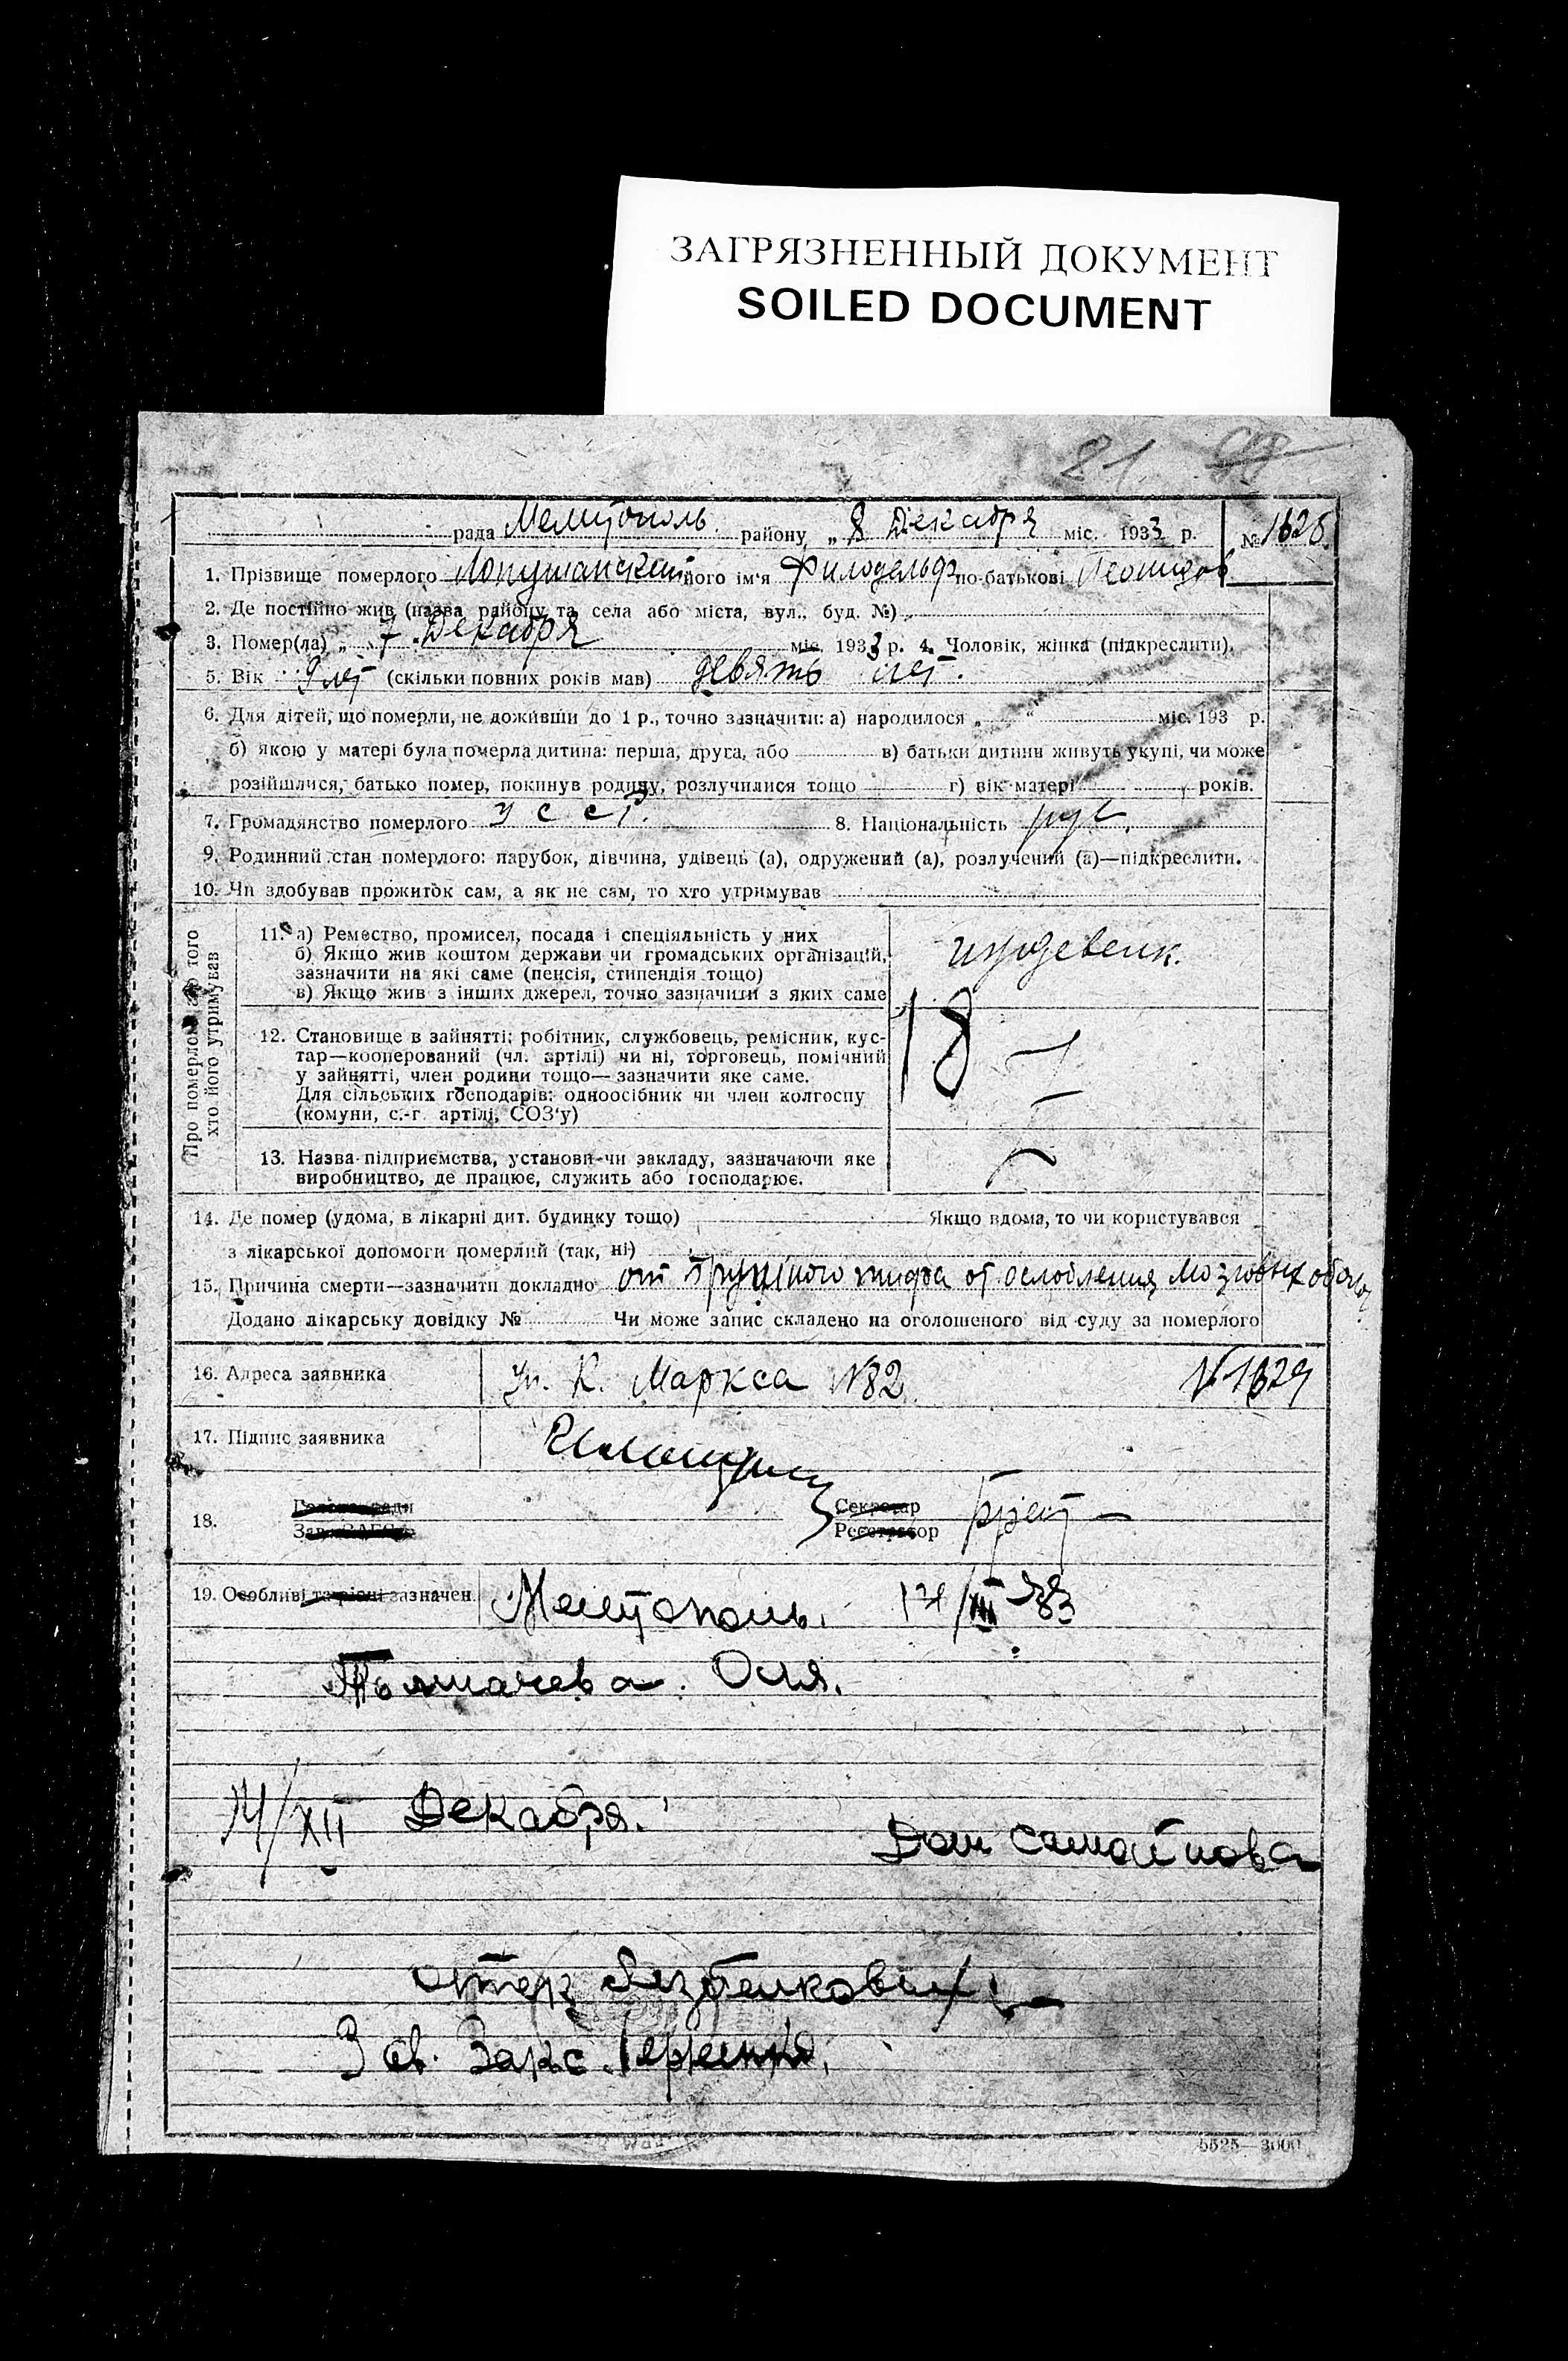 ЗАГРЯЗНЕННЫЙ ДОКУМЕНТ
SOILED DOCUMENT
81
рада Мелитополь району „ 8 Декабря міс. 1933 р. № 1628
1. Прізвище померлого Лопушанский його ім'я Филодельф по-батькові Леонидов
2. Де постійно жив (назва району та села або міста, вул., буд. №)
3. Помер(ла) „ 7 Декабря міс. 1933 р. 4. Чоловік, жінка (підкреслити).
5. Вік 9 лет (скільки повних років мав) девять лет.
6. Для дітей, що померли, не доживши до 1 р., точно зазначити: а) народилося „ “ міс. 193 р.
б) якою у матері була померла дитина: перша, друга, або в) батьки дитини живуть укупі, чи може
розійшлися, батько помер, покинув родину, розлучилися тощо г) вік матері років.
7. Громадянство померлого У С С Р. 8. Національність рус.
9. Родинний стан померлого: парубок, дівчина, удівець (а), одружений (а), розлучений (а)—підкреслити.
10. Чи здобував прожиток сам, а як не сам, то хто утримував
Про померлого або того
хто його утримував
11. а) Ремество, промисел, посада і спеціяльність у них
б) Якщо жив коштом держави чи громадських організацій,
зазначити на які саме (пенсія, стипендія тощо)
в) Якщо жив з інших джерел, точно зазначити з яких саме
иждевенк.
18
12. Становище в зайнятті: робітник, службовець, ремісник, кус-
тар—кооперований (чл. артілі) чи ні, торговець, помічний
у зайнятті, член родини тощо— зазначити яке саме.
Для сільських господарів: одноосібник чи член колгоспу
(комуни, с.-г. артілі, СОЗ'у)
13. Назва підприємства, установи чи закладу, зазначаючи яке
виробництво, де працює, служить або господарює.
14. Де помер (удома, в лікарні дит. будинку тощо) Якщо вдома, то чи користувався
з лікарської допомоги померлий (так, ні)
15. Причина смерти—зазначити докладно от брушного тифа от ослобления мозговых
Додано лікарську довідку № Чи може запис складено на оголошеного від суду за померлого
16. Адреса заявника Ул. К. Маркса №82 №1629
17. Підпис заявника
18. Голова ради Секретар
Зав. ЗАГС'у Реєстратор
19. Особливі та різні зазначен. Мелитополь. XII 33
Толмачева. Оля.
14/XII Декабря.
Дом
Зав. Закс.
5525—3000